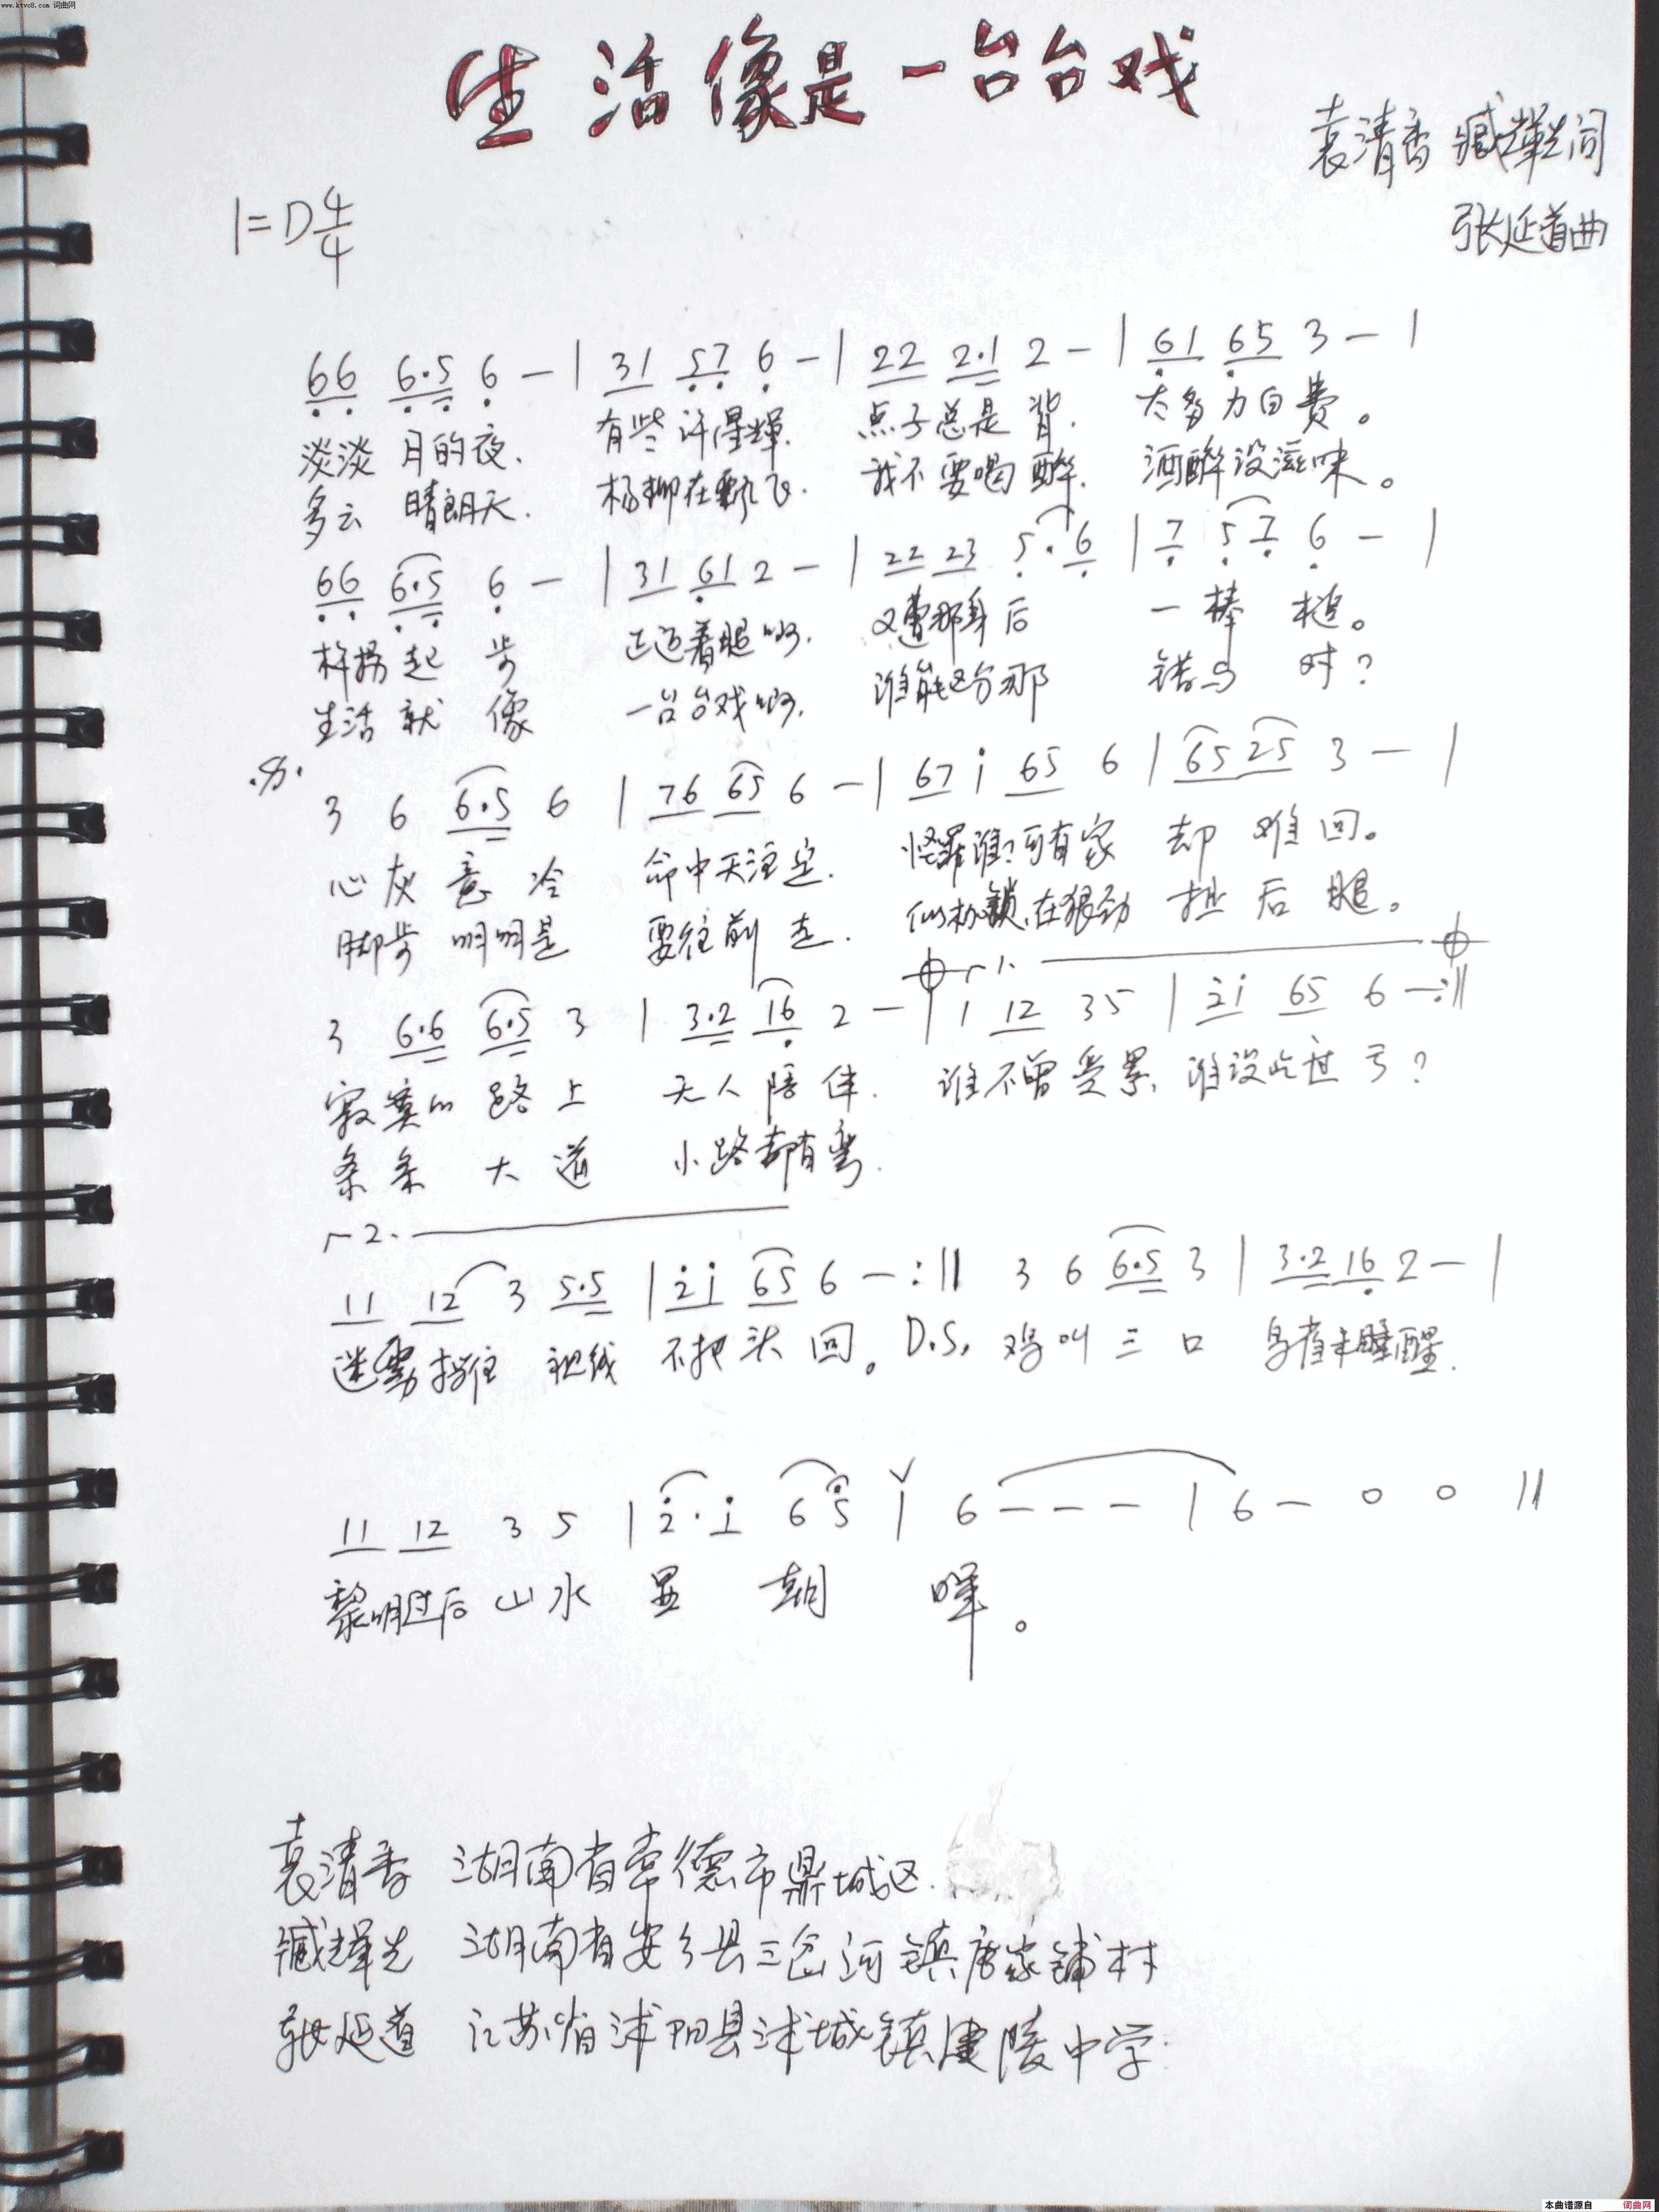 www.ktvc8.com 词曲网
生活像是一台台戏
袁清香 臧辉先词
张延道曲
1=D 4/4
66 6·5 6 — | 31 57 6 — | 22 2·1 2 — | 61 65 3 — |
淡淡 月的夜. 有些许星辉. 点子总是背. 太多力白费。
多云 晴朗天. 杨柳在飘飞. 我不要喝醉. 酒醉没滋味。
66 6·5 6 — | 31 61 2 — | 22 23 5·6 | 7 57 6 — |
拐起步 着腿啊. 又遭那身后 一棒槌。
生活就像 一台台戏啊. 谁能区分那 错与对?
3 6 6·5 6 | 76 65 6 — | 67 i 65 6 | 65 25 3 — |
心灰意冷 命中天注定. 怪罪谁?可有家 却难回。
脚步明明是 要往前走. 似枷锁,在狠劲 拽后腿。
1.
3 6·6 6·5 3 | 3·2 16 2 — | 1 12 35 | 2i 65 6 — :||
寂寞的路上 无人陪伴. 谁不曾受累, 谁没吃过亏?
条条大道 小路都有弯.
2.
11 12 3 5·5 | 2i 65 6 — :|| 3 6 6·5 3 | 3·2 16 2 — |
迷雾挡住视线 不把头回。 D.S. 鸡叫三口 鸟雀未睡醒.
11 12 3 5 | 2·i 6 5 | 6 — — — | 6 — 0 0 ||
黎明过后 山水显朝晖。
袁清香 湖南省常德市鼎城区.
臧辉先 湖南省安乡县三岔河镇唐家铺村
张延道 江苏省沭阳县沭城镇建陵中学
本曲谱源自 词曲网